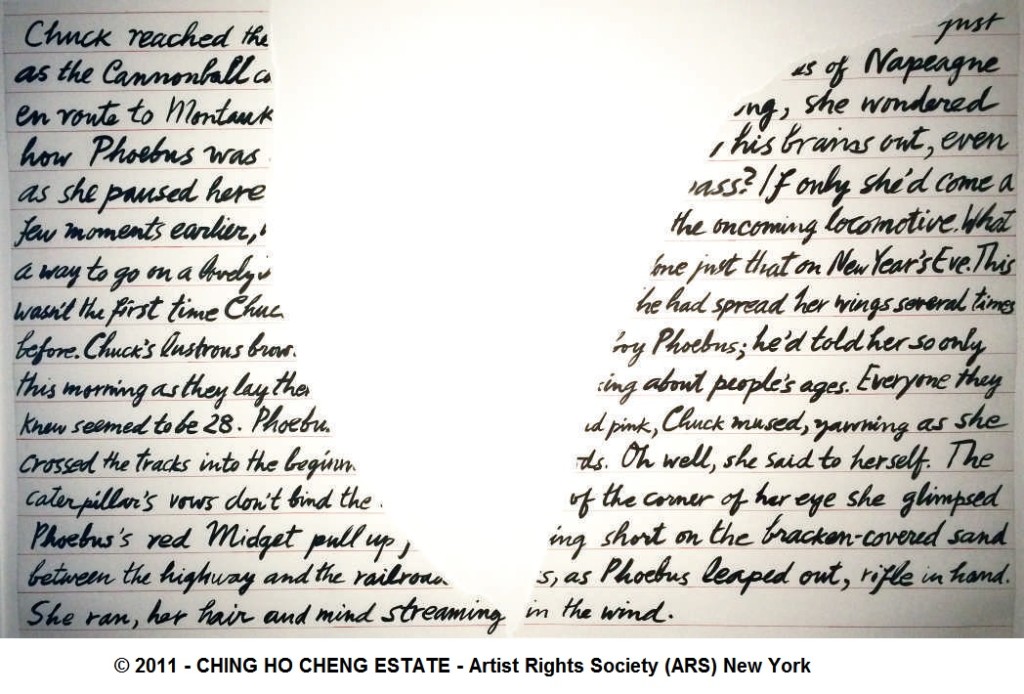 Chuck reached the just
as the Cannonball of Napeague
en route to Montauk she wondered
how Phoebus was his brains out, even
as she paused here If only she'd come a
few moments earlier, the oncoming locomotive. What
a way to go on a lovely just that on New Year's Eve. This
wasn't the first time Chuc he had spread her wings several times
before. Chuck's lustrous brow Phoebus; he'd told her so only
this morning as they lay about people's ages. Everyone they
knew seemed to be 28. Phoebu pink, Chuck mused, yawning as she
crossed the tracks into the Oh well, she said to herself. The
caterpillar's vows don't bind the of the corner of her eye she glimpsed
Phoebus's red Midget pull up, short on the bracken-covered sand
between the highway and the railroa s, as Phoebus leaped out, rifle in hand.
She ran, her hair and mind streaming in the wind.
© 2011 - CHING HO CHENG ESTATE - Artist Rights Society (ARS) New York